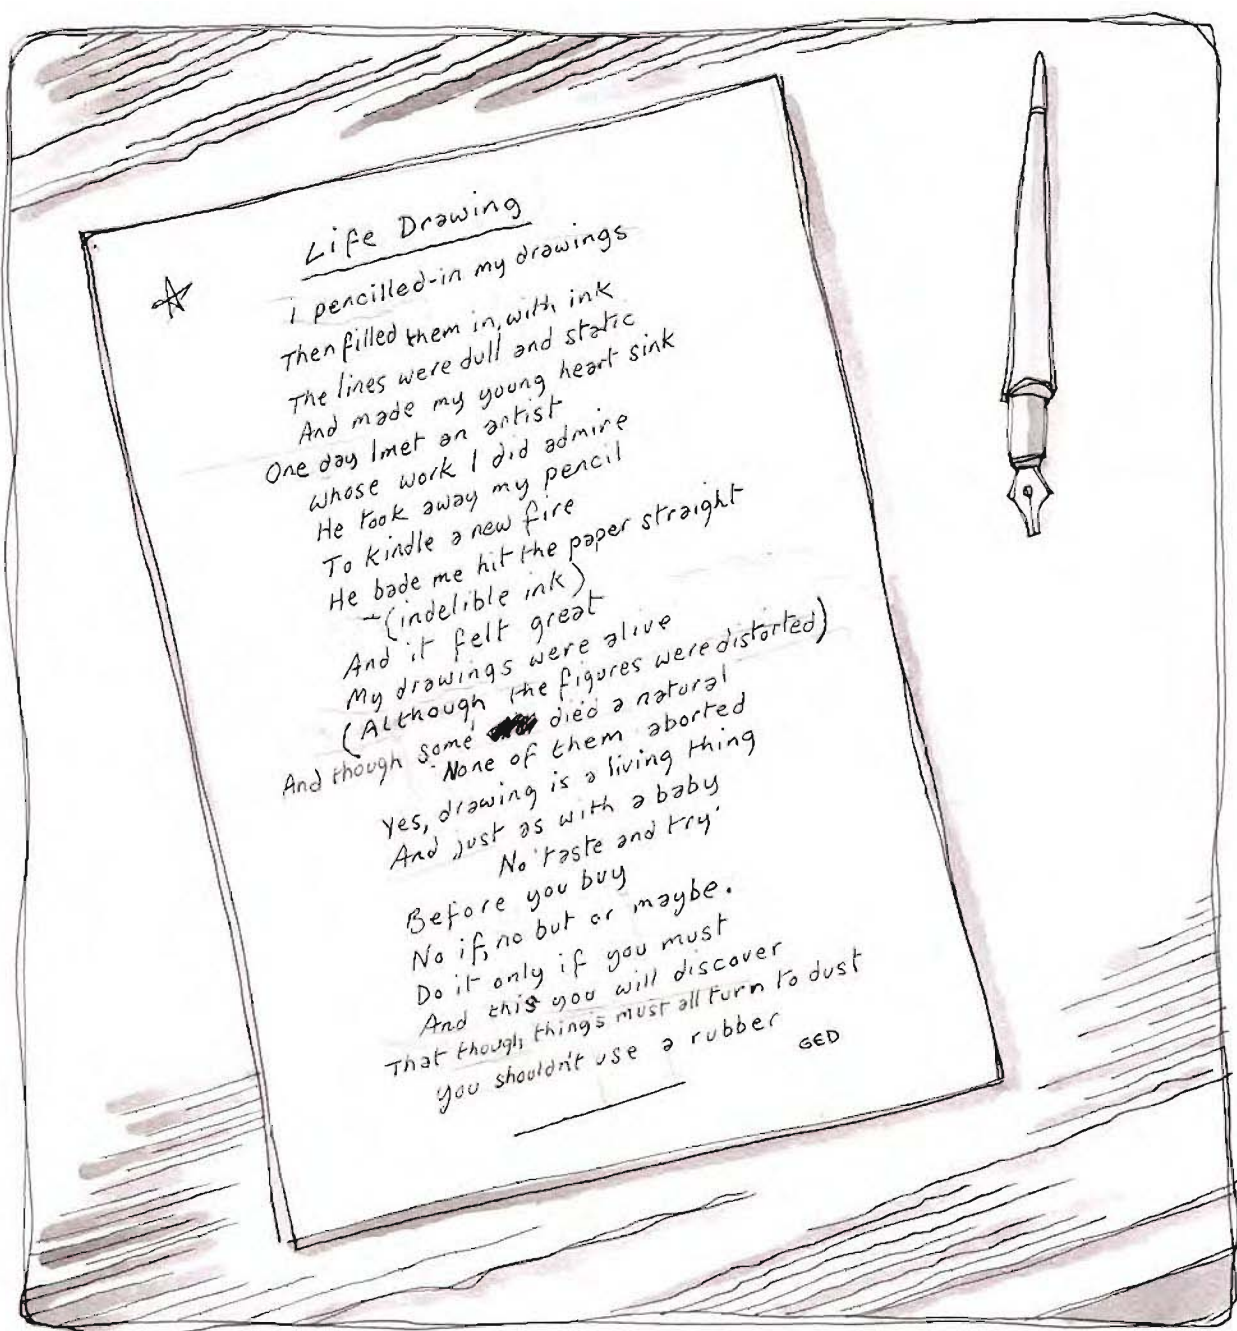 Life Drawing
i pencilled-in my drawings
Then filled them in, with ink
The lines were dull and static
And made my young heart sink
One day I met an artist
whose work I did admire
He took away my pencil
To kindle a new fire
He bade me hit the paper straight
~(indelible ink)
And it felt great
My drawings were alive
(Although the figures were distorted)
And though some died a natural
None of them aborted
Yes, drawing is a living thing
And just as with a baby
No 'taste and try'
Before you buy
No if, no but or maybe.
Do it only if you must
And this you will discover
That though things must all turn to dust
you shouldn't use a rubber
GED